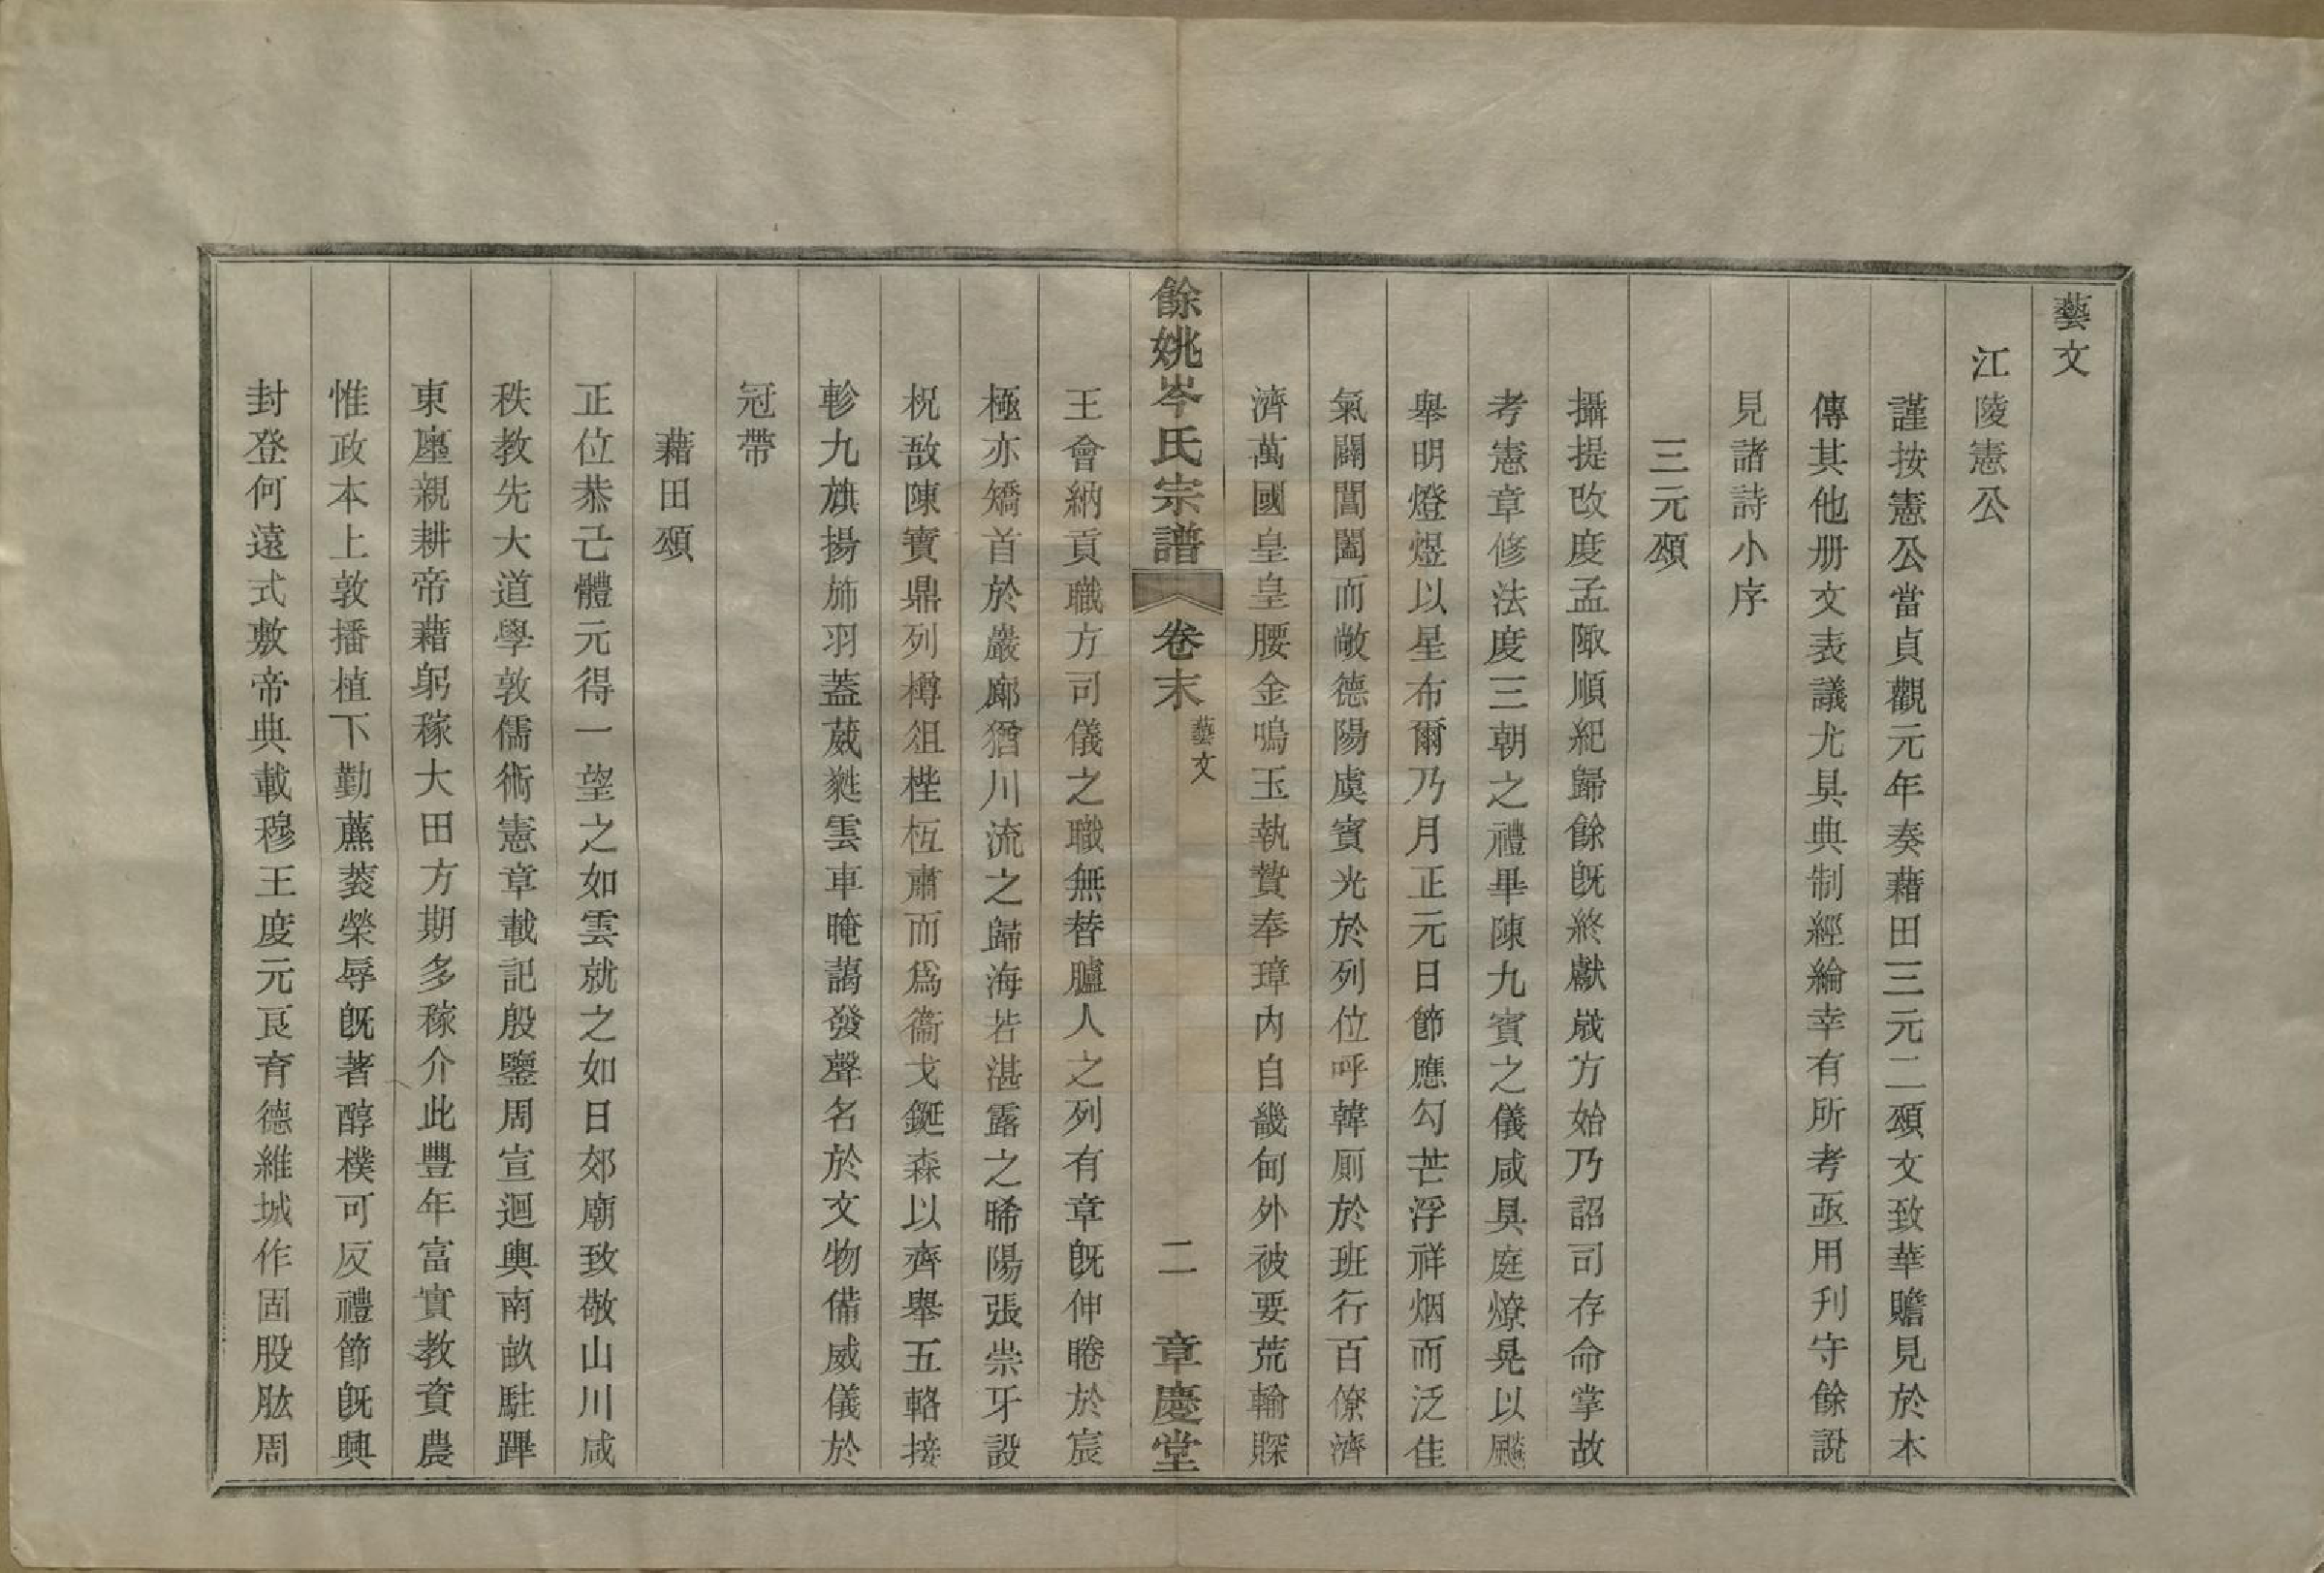 藝文
江陵憲公
謹按憲公當貞觀元年奏藉田三元二頌文致華贍見於本
傳其他册文表議尤具典制經綸幸有所考亟用刋守餘說
見諸詩小序
三元頌
攝提改度孟陬順紀歸餘旣終獻歲方始乃詔司存命掌故
考憲章修法度三朝之禮畢陳九賓之儀咸具庭燎晃以飇
舉明燈煜以星布爾乃月正元日節應勾芒浮祥烟而泛佳
氣闢閶闔而敞德陽虞賓光於列位呼韓厠於班行百僚濟
濟萬國皇皇腰金鳴玉執贄奉璋内自畿甸外被要荒輸賝
餘姚岑氏宗譜 卷末 藝文 二 章慶堂
王會納貢職方司儀之職無替臚人之列有章旣伸睠於宸
極亦矯首於巖廊猶川流之歸海若湛露之晞陽張崇牙設
柷敔陳寶鼎列樽俎梐枑肅而爲衞戈鋋森以齊舉五輅接
軫九旗揚斾羽蓋葳蕤雲車晻藹發聲名於文物備威儀於
冠帶
藉田頌
正位恭己體元得一望之如雲就之如日郊廟致敬山川咸
秩教先大道學敦儒術憲章載記殷鑒周宣迴輿南畝駐蹕
東廛親耕帝藉躬稼大田方期多稼介此豐年富實教資農
惟政本上敦播植下勤藨蔉榮辱旣著醇樸可反禮節旣興
封登何遠式敷帝典載穆王度元良育德維城作固股肱周